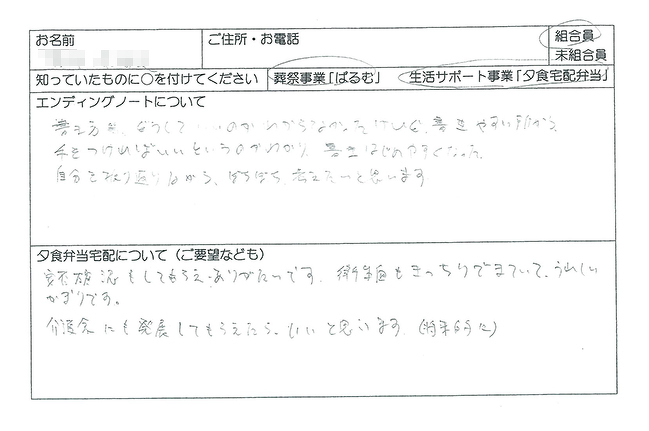 お名前
ご住所・お電話
組合員
未組合員
知っていたものに○を付けてください
葬祭事業「ぱるむ」
生活サポート事業「夕食宅配弁当」
エンディングノートについて
書き方が、どうして いいのか わからなかったけれど、書きやすい所から、
手をつければいいというのがわかり、書きはじめやすくなった。
自分をふり返りながら、ぼちぼち、考えたいと思います
夕食弁当宅配について（ご要望なども）
もしてもらえ、ありがたいです。衛生面もきっちりできていて、うれしい
かぎりです。
介護食にも発展してもらえたら、いいと思います。(将来的に)